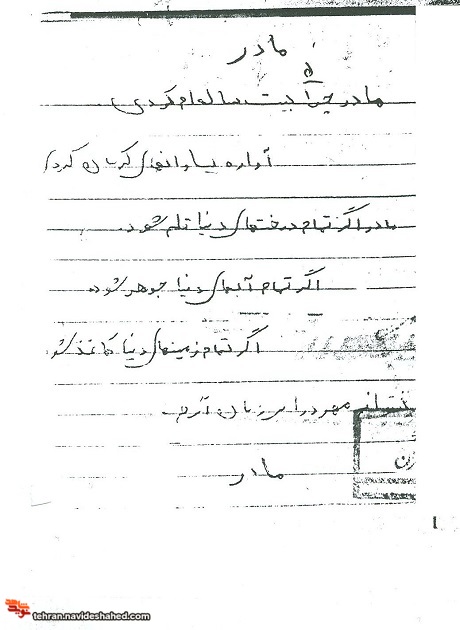 مادر
مادر چرا بیست ساله‌ام کردی
آواره بیابانهای کربلا کردی
مادر اگر تمام درختهای دنیا قلم شود.
اگر تمام آبهای دنیا جوهر شود
اگر تمام زمینهای دنیا کاغذ شو
نتوانم مهر مادر را بر زبان آرم.
مادر
1
tehran.navideshahed.com